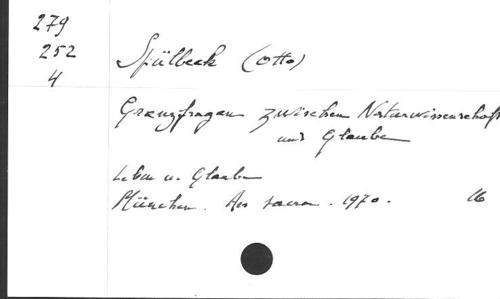 279
252
4
Spülbeck (Otto)
Grenzfragen zwischen Naturwissenschaft
und Glaube
Leben u. Glaube
München. Ars sacra. 1970.
16